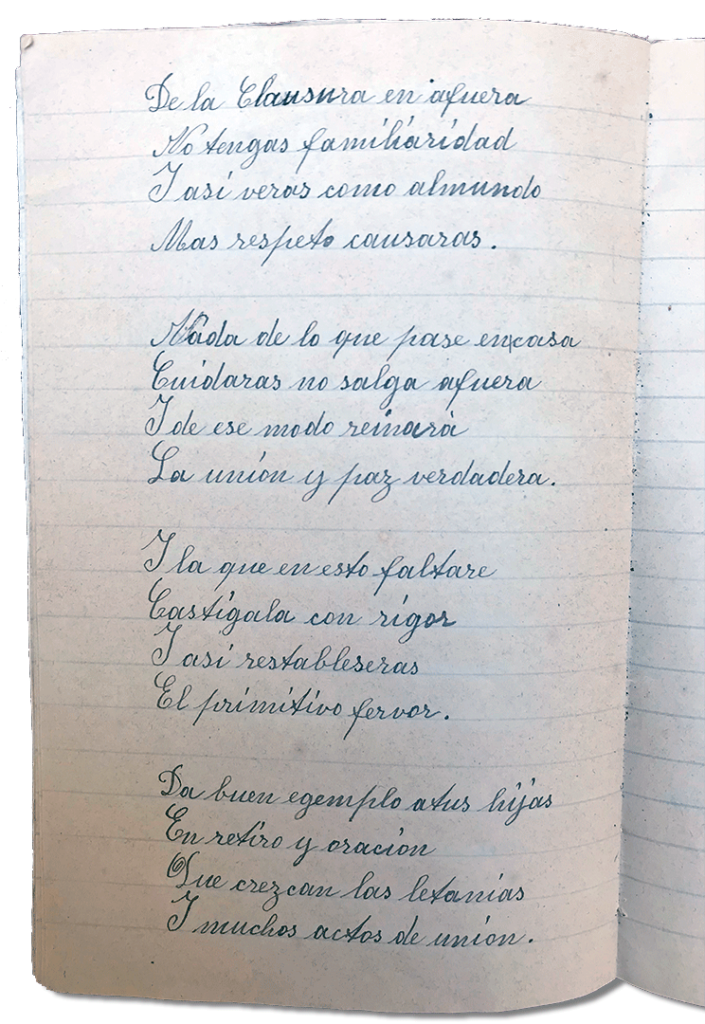 De la Clausura en afuera
No tengas familiaridad
I asi veras como almundo
Mas respeto causaras.
Nada de lo que pase encasa
Cuidaras no salga afuera
I de ese modo reinarà
La unión y paz verdadera.
I la que en esto faltare
Castigala con rigor
I asi restableseras
El primitivo fervor.
Da buen egemplo atus hijas
En retiro y oracion
Que crezcan las letanias
I muchos actos de union.